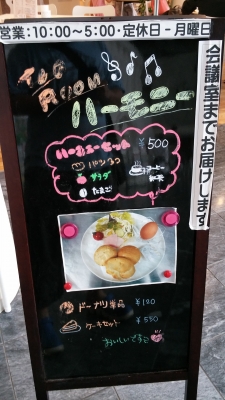 営業:10:00〜5:00・定休日-月曜日
TEA
ROOM
ハーモニー
会議室までお届けします
ハーモニーセット ¥500
パン2コ
サラダ
たまご
コーヒー
紅茶
ドーナツ単品 ¥120
ケーキセット ¥550
おいしいですヨ